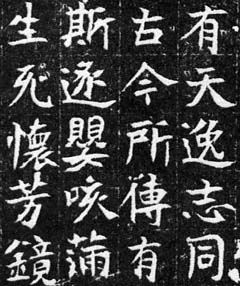 有天逸志同
古今所傳有
斯逐嬰咳蒲
生死懷芳鏡